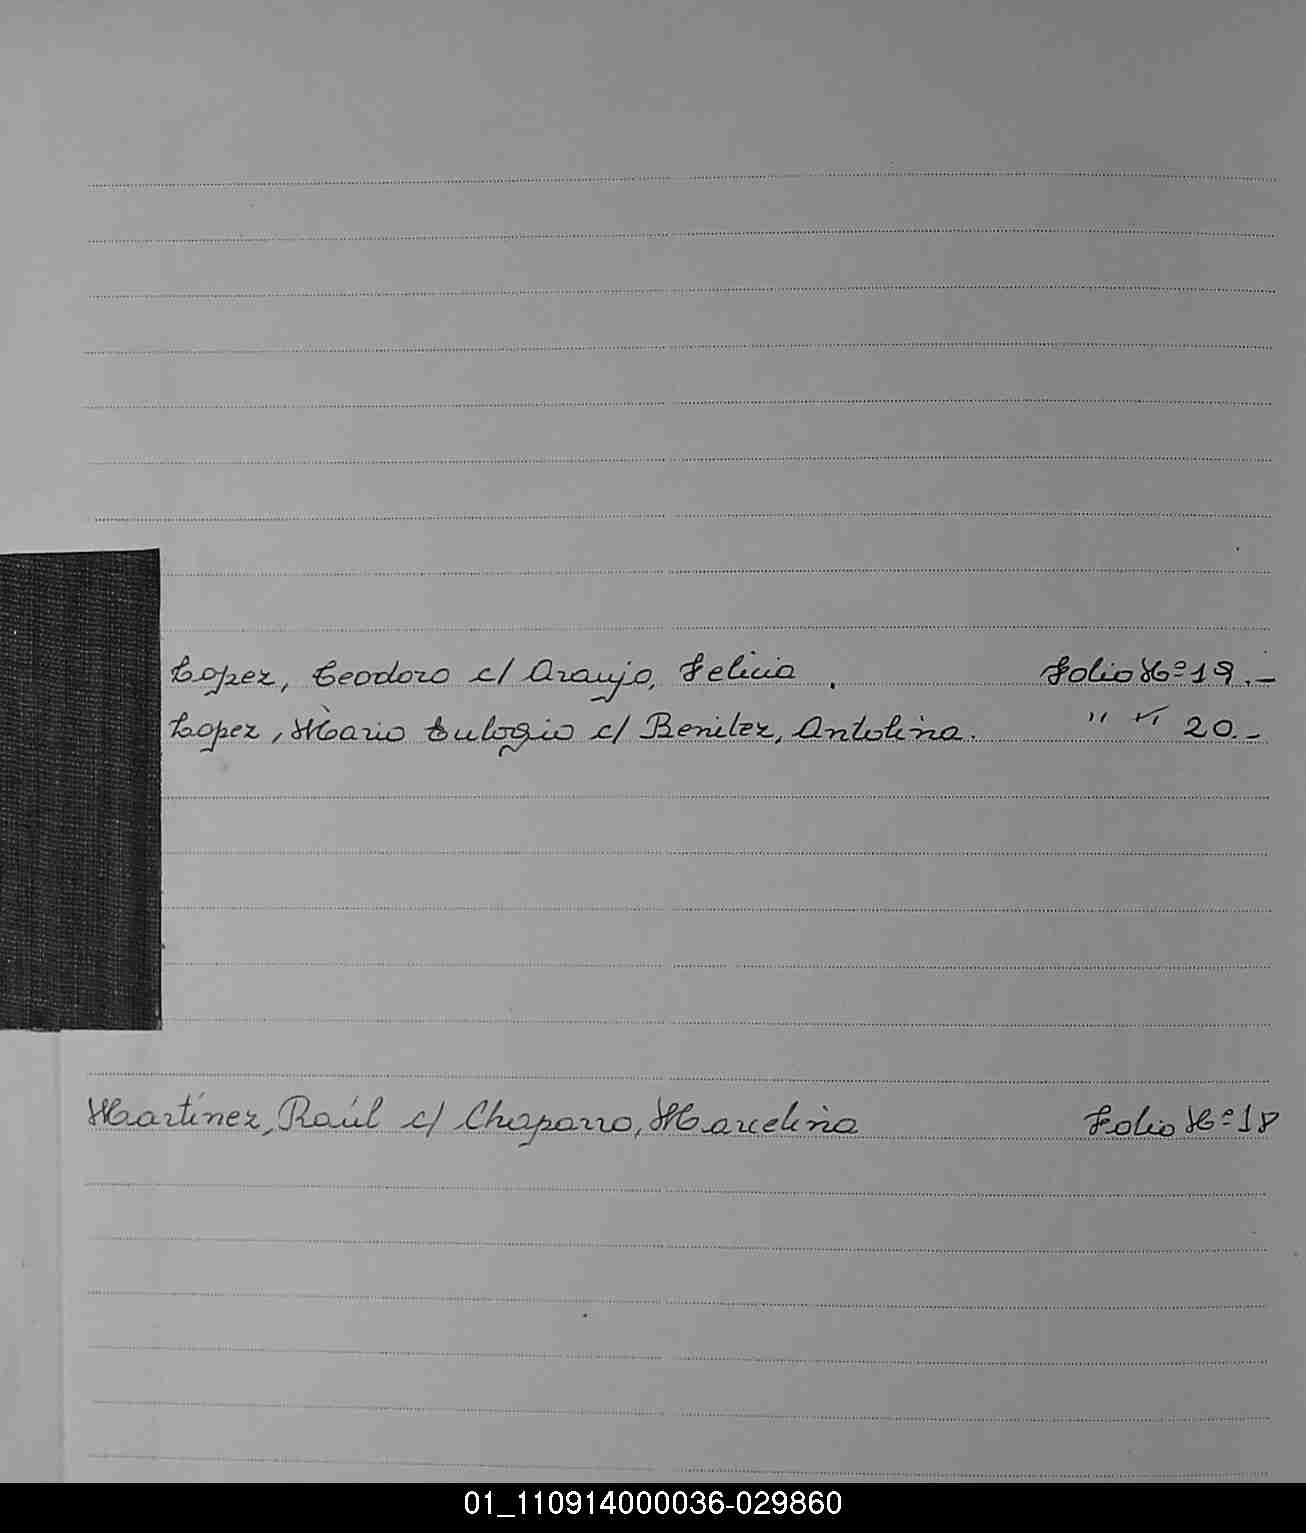 Lopez, Teodoro c/ Araujo, Felicia . Folio Nº 19.-
Lopez, Mario Eulogio c/ Benitez, Antolina. " " 20.-
Martínez, Raúl c/ Chaparro, Marcelina Folio Nº 18
01_110914000036-029860